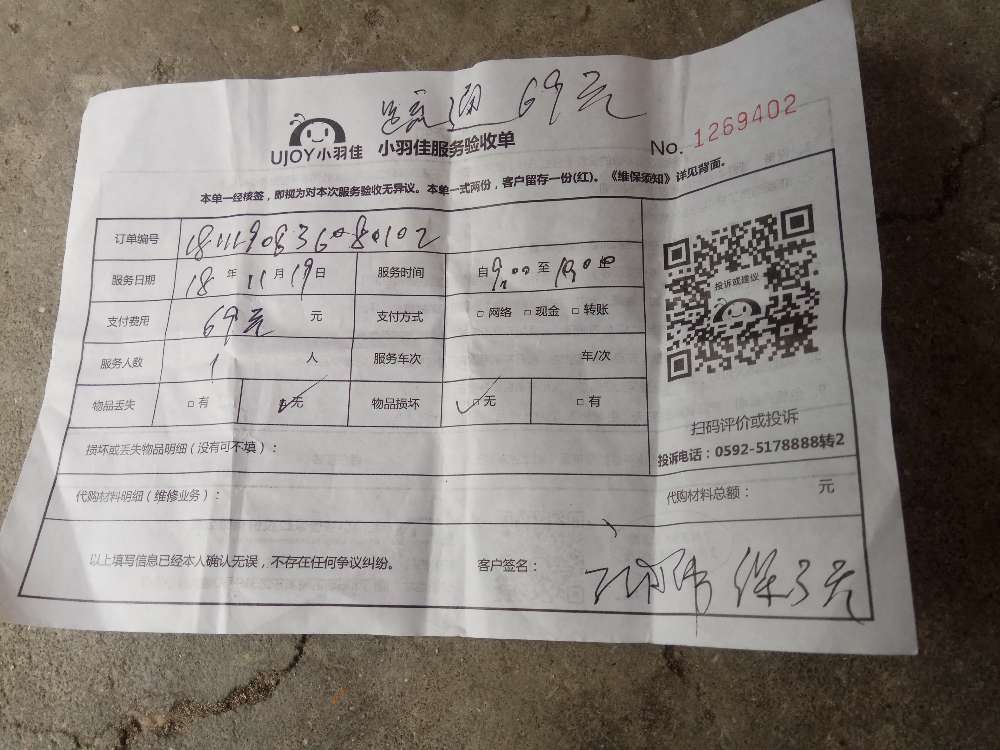 69元
UJOY小羽佳 小羽佳服务验收单
No. 1269402
本单一经核签，即视为对本次服务验收无异议。本单一式两份，客户留存一份(红)。《维保须知》详见背面。
订单编号
服务日期 18年11月19日 服务时间 自9:00至10:00止
支付费用 69元 元 支付方式 □网络 □现金 □转账
服务人数 1 人 服务车次 车/次
物品丢失 □有 □无 物品损坏 □无 □有
投诉或建议
扫码评价或投诉
投诉电话：0592-5178888转2
损坏或丢失物品明细（没有可不填）：
代购材料明细（维修业务）： 代购材料总额： 元
以上填写信息已经本人确认无误，不存在任何争议纠纷。 客户签名：